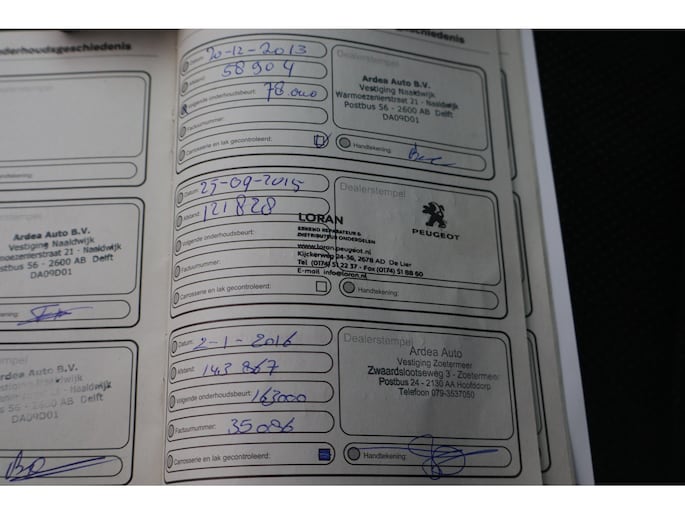 nderhoudsgeschiedenis
Ardea Auto B.V.
Vestiging Naaldwijk
armoezenierstraat 21 - Naaldwijk
ostbus 56 - 2600 AB Delft
DA09D01
ening:
mpel
rdea Auto B.V.
Vestiging Naaldwijk
straat 21 - Naaldwijk
56 - 2600 AB Delft
DA09D01
geschiedenis
Datum: 20-12-2013
Afstand: 58904
Volgende onderhoudsbeurt: 78.000
Factuurnummer:
Carrosserie en lak gecontroleerd:
Dealerstempel
Ardea Auto B.V.
Vestiging Naaldwijk
Warmoezenierstraat 21 - Naaldwijk
Postbus 56 - 2600 AB Delft
DA09D01
Handtekening:
Datum: 25-09-2015
Afstand: 121828
Volgende onderhoudsbeurt:
Factuurnummer:
Carrosserie en lak gecontroleerd:
Dealerstempel
PEUGEOT
LORAN
ERKEND REPARATEUR &
DISTRIBUTEUR ONDERDELEN
www.loran.peugeot.nl
Kijckerweg 24-36, 2678 AD De Lier
Tel (0174) 51 22 37 - Fax (0174) 51 88 60
E-mail info@loran.nl
Handtekening:
Datum: 2-1-2016
Afstand: 143 867
Volgende onderhoudsbeurt: 163000
Factuurnummer: 35086
Carrosserie en lak gecontroleerd:
Dealerstempel
Ardea Auto
Vestiging Zoetermeer
Zwaardslootseweg 3 - Zoetermeer
Postbus 24 - 2130 AA Hoofddorp
Telefoon 079-3537050
Handtekening: